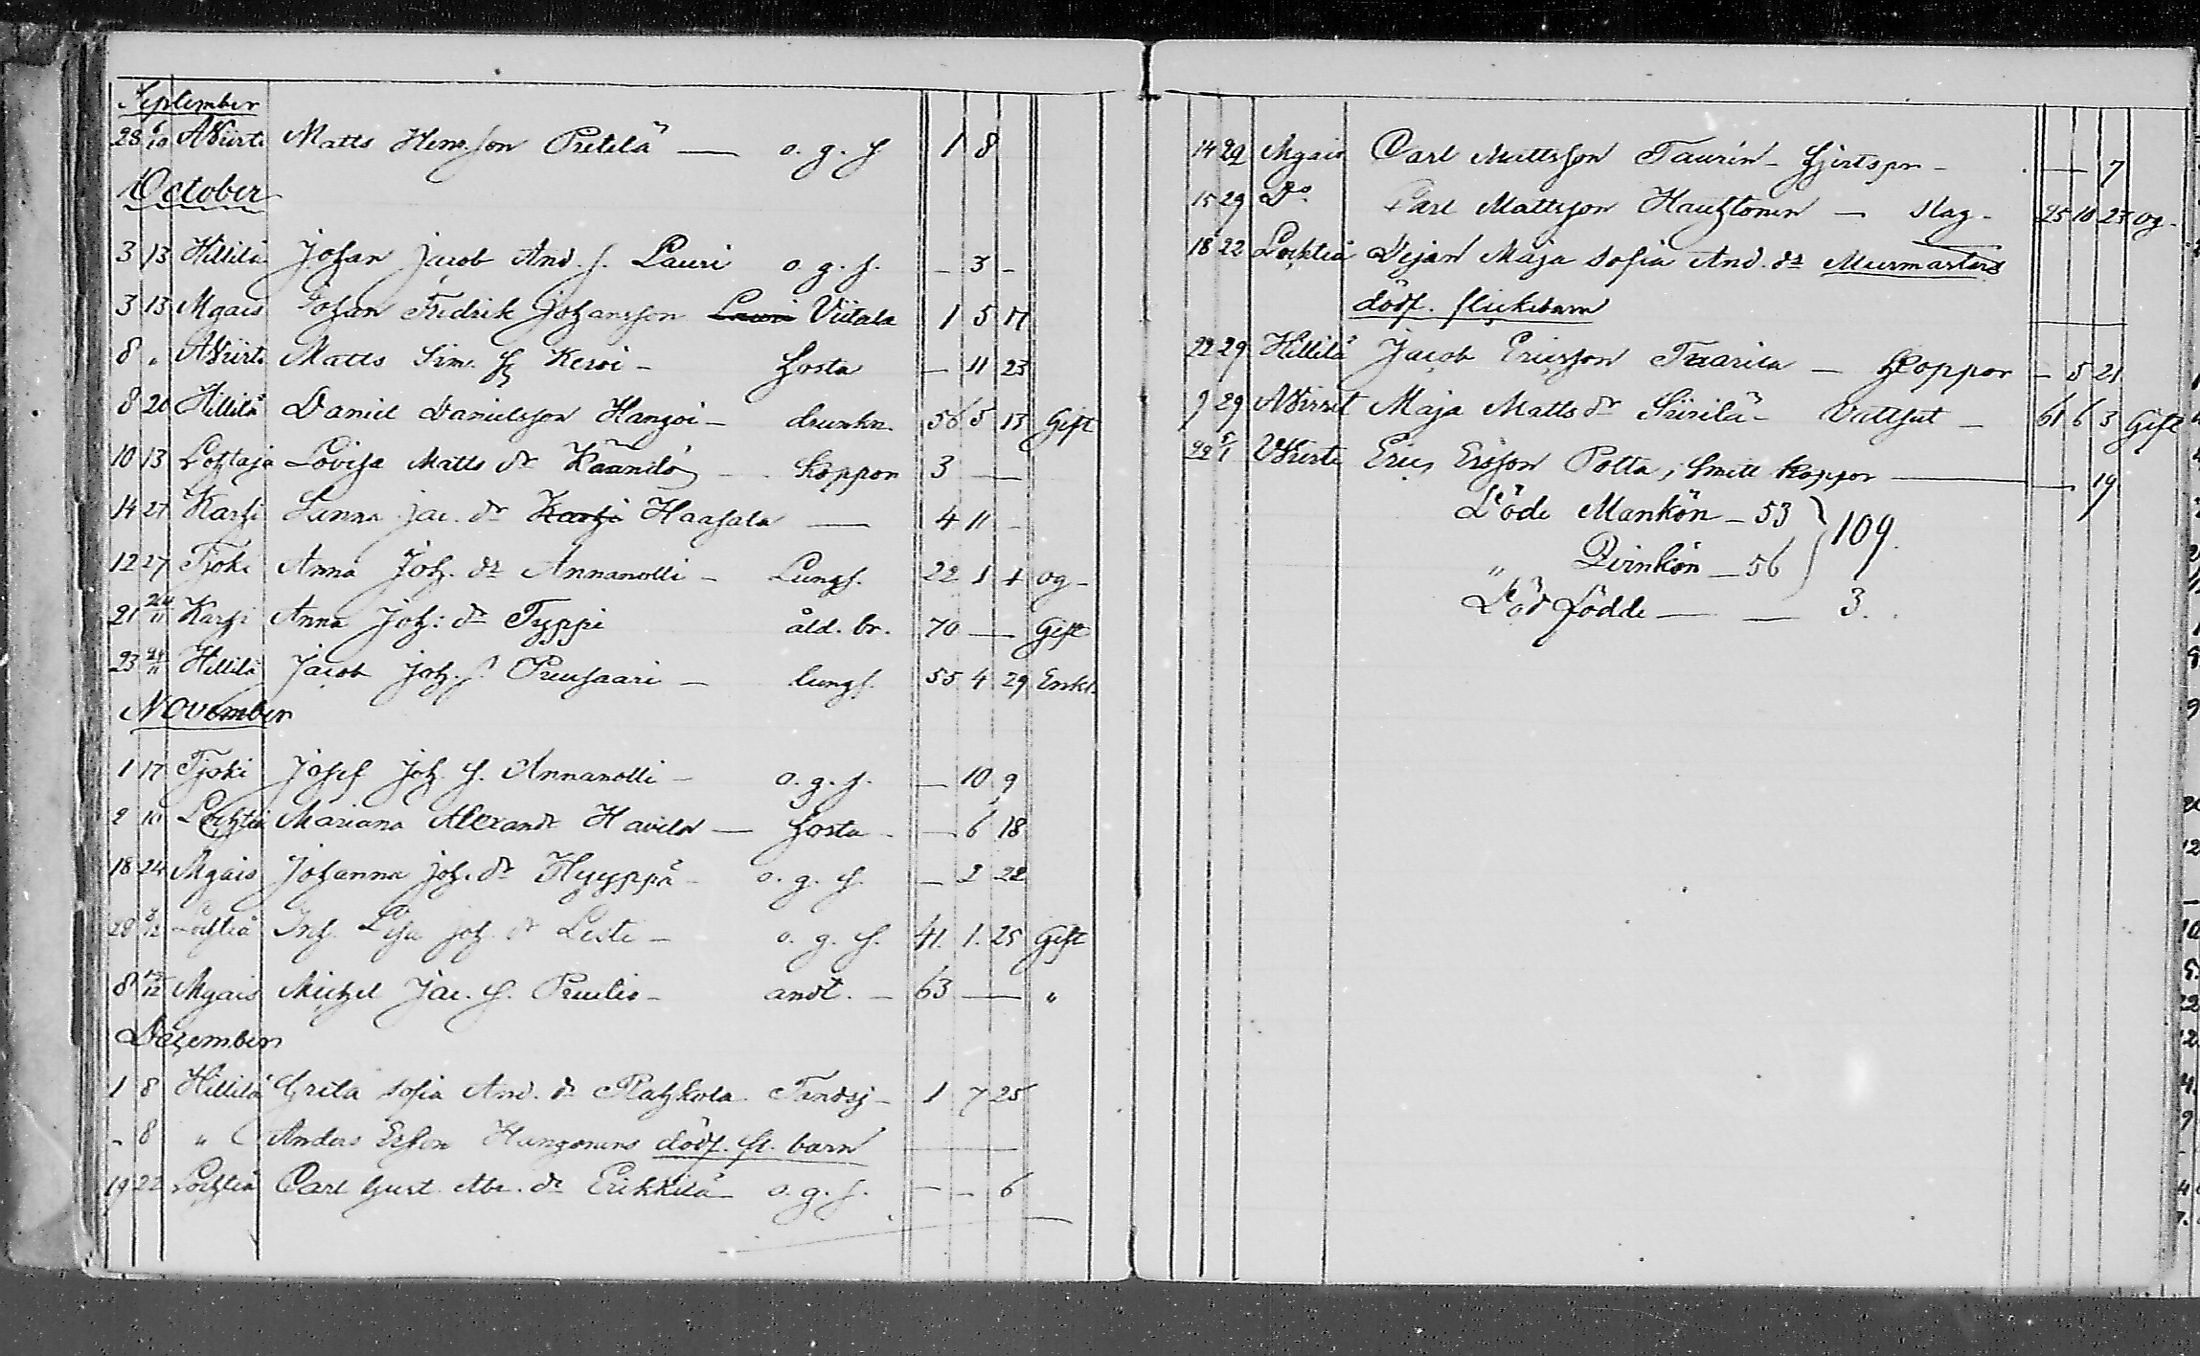 September
28 6/10 NWirte Matts Hens. son Pretilä — o. g. s 1 8
October
3 13 Hillilä Johan Jacob And. s. Lauri o. g. s. — 3 —
3 13 Mgais Johan Fredrik Johansson Lauri Viitala 1 5 17
8 " NWirte Matts Sim. s Keroi — hosta — 11 23
8 20 Hillilä Daniel Danielsson Hangoi — drunkn. 56 5 13 Gift
10 13 Lohtaja Lovisa Matts dr Kännilö — koppor 3 —
14 27 Karhi Sanna Jac. dr Karhi Haasala — 4 11 —
12 27 Tjoki Anna Joh. dr Annanolli — Lungs. 22 1 4 og —
21 11 Karhi Anna Joh: dr Typpi åld. br. 70 — Gift
23 24/11 Hillilä Jacob Joh. s. Preusaari — lungs. 55 4 29 Enkl.
November
1 17 Tjoki Josef Joh. s. Annanolli — o. g. s. — 10 9
2 10 Lochteå Mariana Alexandr Havila — hosta — — 6 18
18 24 Mgais Johanna Joh. dr Hyyppä — o. g. s. — 2 22
28 8/12 Lochteå Inh. Lisa Joh. dr Leste — o. g. s. 41. 1. 25 Gift
8 12 Mgais Michel Jac. s. Preulis — andt. — 63 — "
December
1 8 Hillilä Greta Sofia And. dr Plathkola Tandsj — 1 7 25
— 8 " Anders Ersson Hangonens dödf. fl. barn — —
19 22 Lochteå Carl Gust. Abr. dr Erikkilä — o. g. s. — — 6
14 29 Mgais Carl Mattsson Taurén — hjertspr — — 7
15 29 Do. Carl Mattsson Hauhtonen — slag — 25 10 23 og —
18 22 Lochteå Pejan Maja Sofia And. dr Murmästars
dödf. flickebarn —
22 29 Hillilä Jacob Ericsson Taarila — Koppor — 5 21
9 29 NWirret Maja Matts dr Siirilä — Vattsut — 61 6 3 Gift
22 5/1 NWirte Eric Ersson Potta, smitt koppor — — 19
Döde Mankön — 53 } 109.
" Qvinkön — 56
Död födde — — 3.